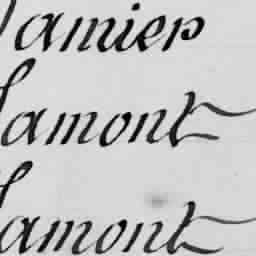 amier
lamont
lamont